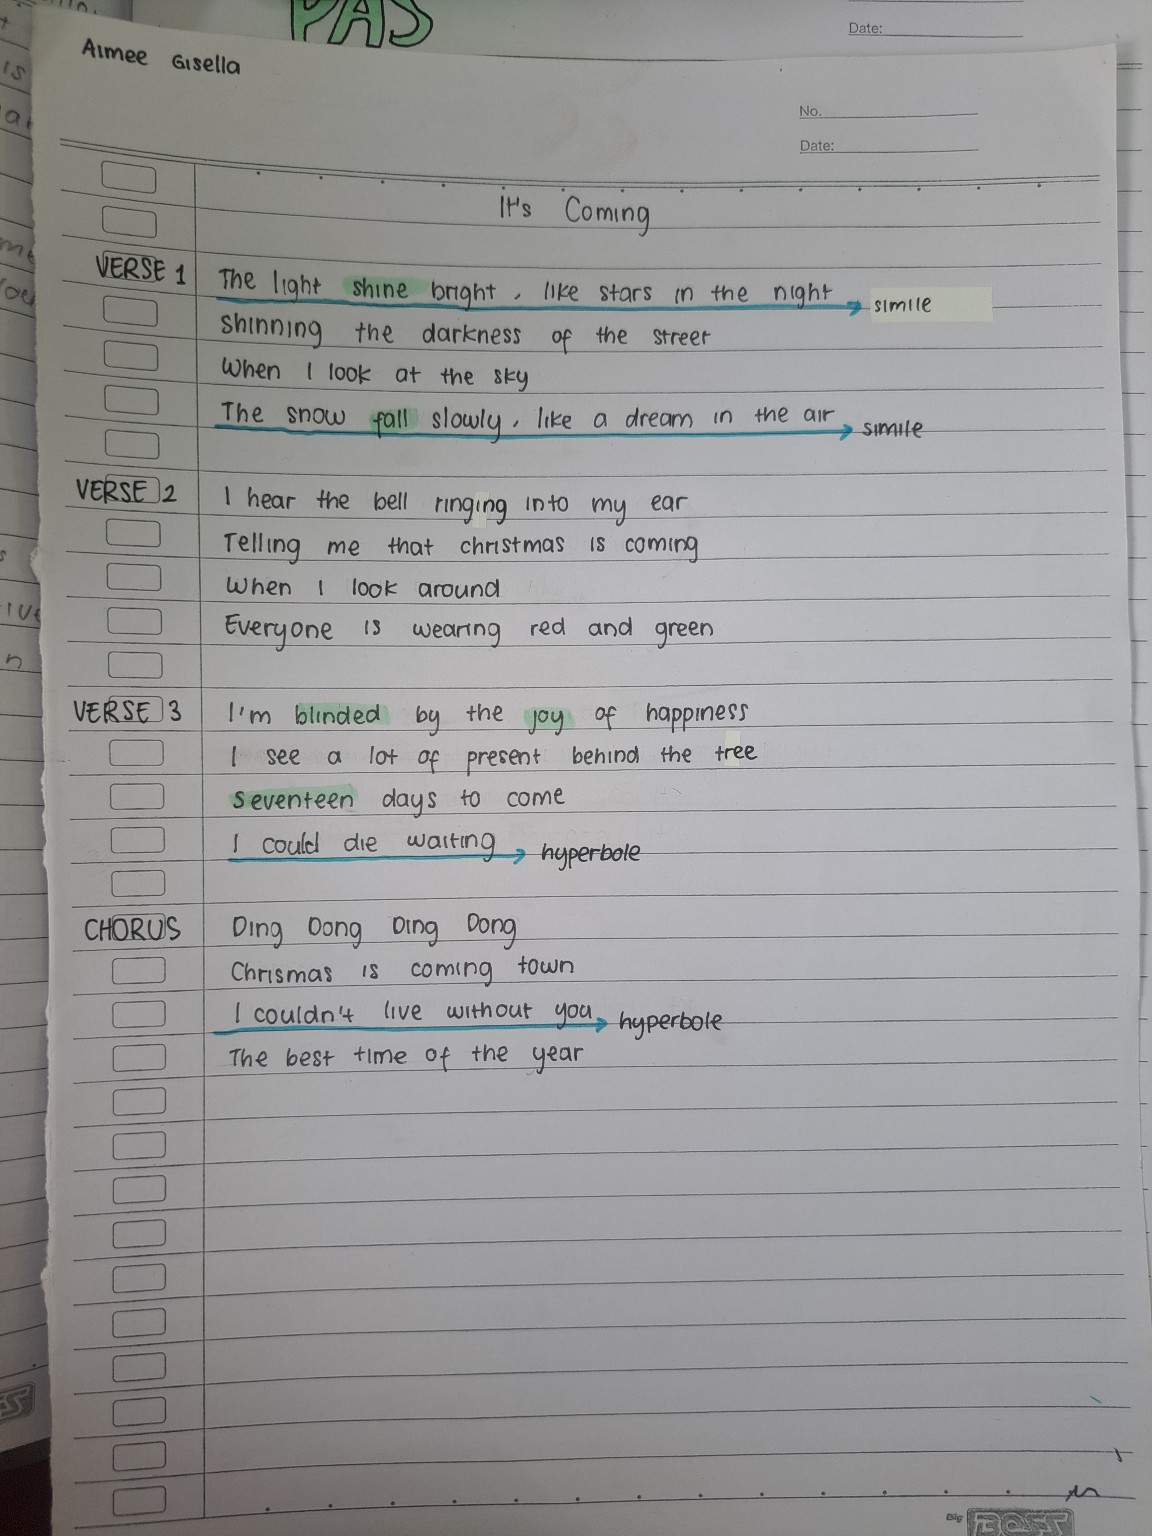 PAS
Date:
Aimee Gisella
No.
Date:
It's Coming
VERSE 1 The light shine bright, like stars in the night → simile
Shinning the darkness of the street
When I look at the sky
The snow fall slowly, like a dream in the air → simile
VERSE 2 I hear the bell ringing into my ear
Telling me that christmas is coming
When I look around
Everyone is wearing red and green
VERSE 3 I'm blinded by the joy of happiness
I see a lot of present behind the tree
Seventeen days to come
I could die waiting → hyperbole
CHORUS Ding Dong Ding Dong
Chrismas is coming town
I couldn't live without you → hyperbole
The best time of the year
Big Boss